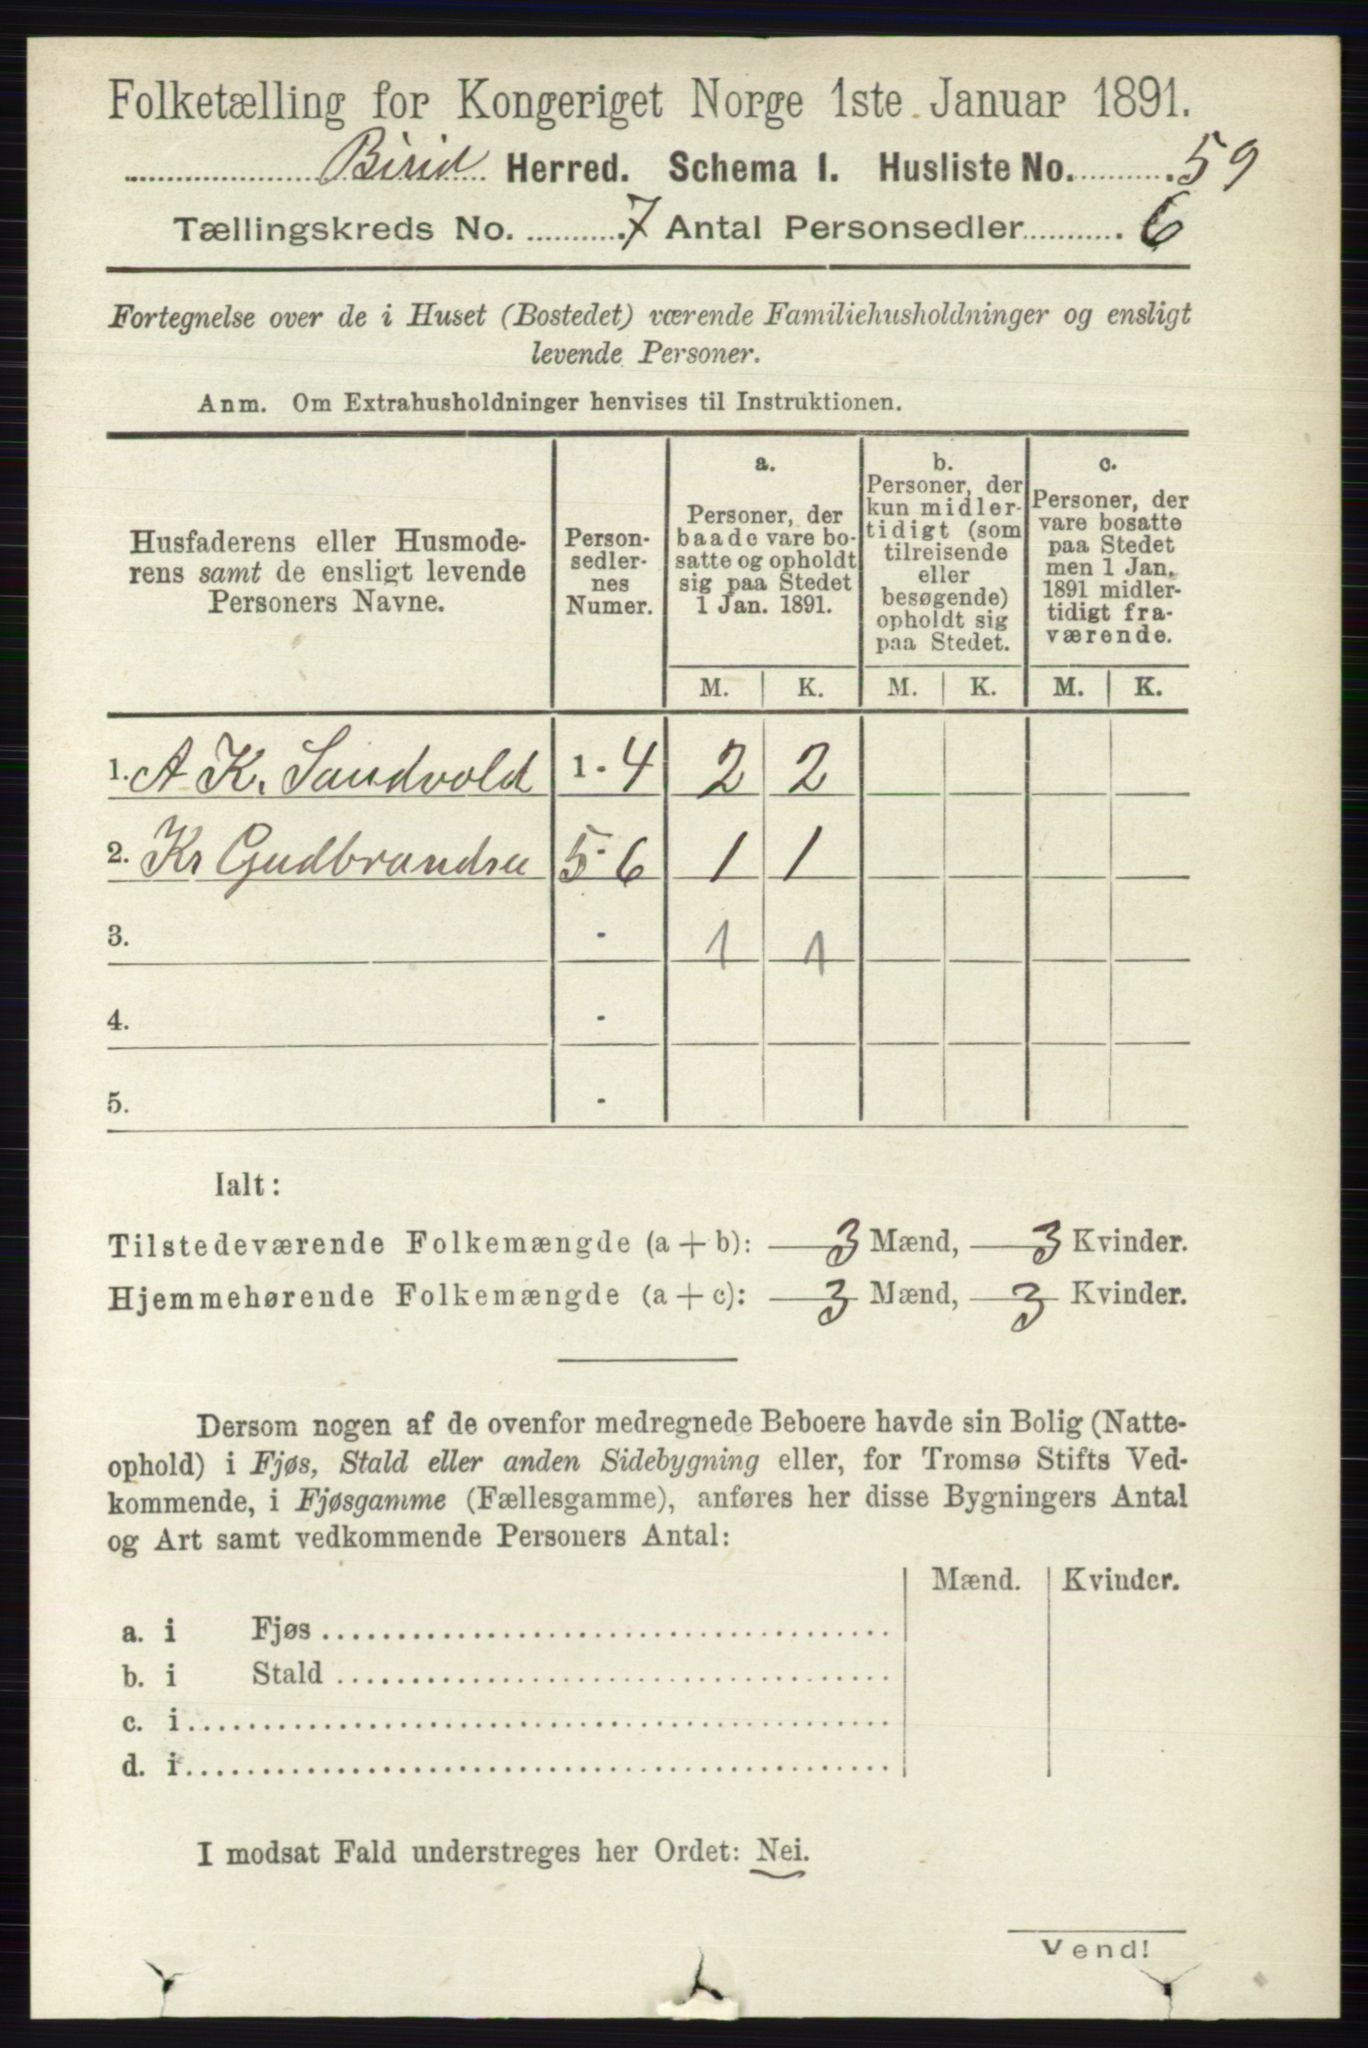 Folketælling for Kongeriget Norge 1ste Januar 1891.
Birid Herred. Schema I. Husliste No. 59
Tællingskreds No. 7 Antal Personsedler 6
Fortegnelse over de i Huset (Bostedet) værende Familiehusholdninger og ensligt
levende Personer.
Anm. Om Extrahusholdninger henvises til Instruktionen.
Husfaderens eller Husmode-
rens samt de ensligt levende
Personers Navne.
Person-
sedler-
nes
Numer.
a.
Personer, der
baade vare bo-
satte og opholdt
sig paa Stedet
1 Jan. 1891.
b.
Personer, der
kun midler-
tidigt (som
tilreisende
eller
besøgende)
opholdt sig
paa Stedet.
c.
Personer, der
vare bosatte
paa Stedet
men 1 Jan.
1891 midler-
tidigt fra-
værende.
M. K. M. K. M. K.
1. A K. Sandvold 1 - 4 2 2
2. Kr Gudbrandsen 5 - 6 1 1
3. - 1 1
4. -
5. -
Ialt:
Tilstedeværende Folkemængde (a + b): 3 Mænd, 3 Kvinder.
Hjemmehørende Folkemængde (a + c): 3 Mænd, 3 Kvinder.
Dersom nogen af de ovenfor medregnede Beboere havde sin Bolig (Natte-
ophold) i Fjøs, Stald eller anden Sidebygning eller, for Tromsø Stifts Ved-
kommende, i Fjøsgamme (Fællesgamme), anføres her disse Bygningers Antal
og Art samt vedkommende Personers Antal:
Mænd. Kvinder.
a. i Fjøs
b. i Stald
c. i
d. i
I modsat Fald understreges her Ordet: Nei.
Vend!